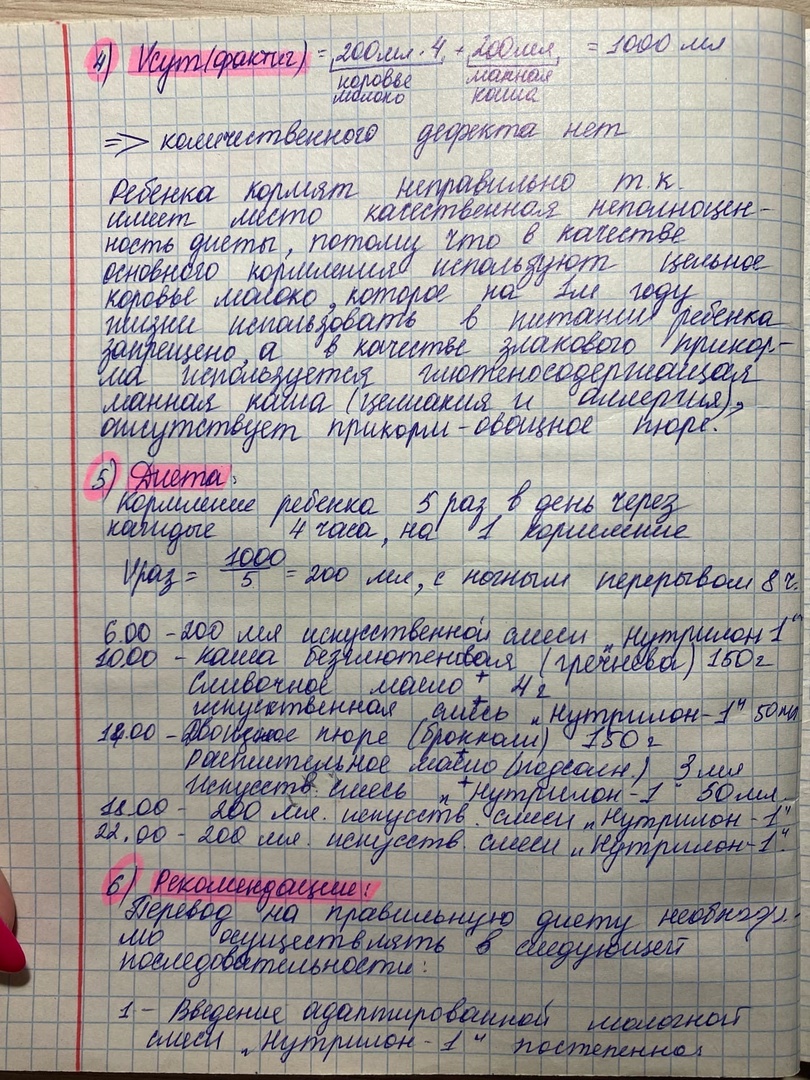 4) Vсут(фактич) = 200мл · 4 + 200мл = 1000 мл
коровье молоко манная каша
=> количественного дефекта нет
Ребенка кормят неправильно т.к.
имеет место качественная неполноцен-
ность диеты, потому что в качестве
основного кормления используют цельное
коровье молоко, которое на 1м году
жизни использовать в питании ребенка
запрещено, а в качестве злакового прикор-
ма используется глютеносодержащая
манная каша (целиакия и аллергия),
отсутствует прикорм - овощное пюре.
5) Диета:
Кормление ребенка 5 раз в день через
каждые 4 часа, на 1 кормление
Vраз = 1000/5 = 200 мл, с ночным перерывом 8 ч.
6.00 - 200 мл искусственной смеси „Нутрилон-1"
10.00 - каша безглютеновая (гречнева) 150г
+
сливочное масло 4г
+
искусственная смесь „Нутрилон-1" 50мл
14.00 - Овощное пюре (брокколи) 150г
+
растительное масло (подсолн.) 3 мл
+
искусств. смесь „Нутрилон-1" 50мл.
18.00 - 200 мл. искусств. смеси „Нутрилон-1"
22.00 - 200 мл. искусств. смеси „Нутрилон-1".
6) Рекомендации:
Перевод на правильную диету необходи-
мо осуществлять в следующей
последовательности:
1 - Введение адаптированной молочной
смеси „Нутрилон-1" постепенно: